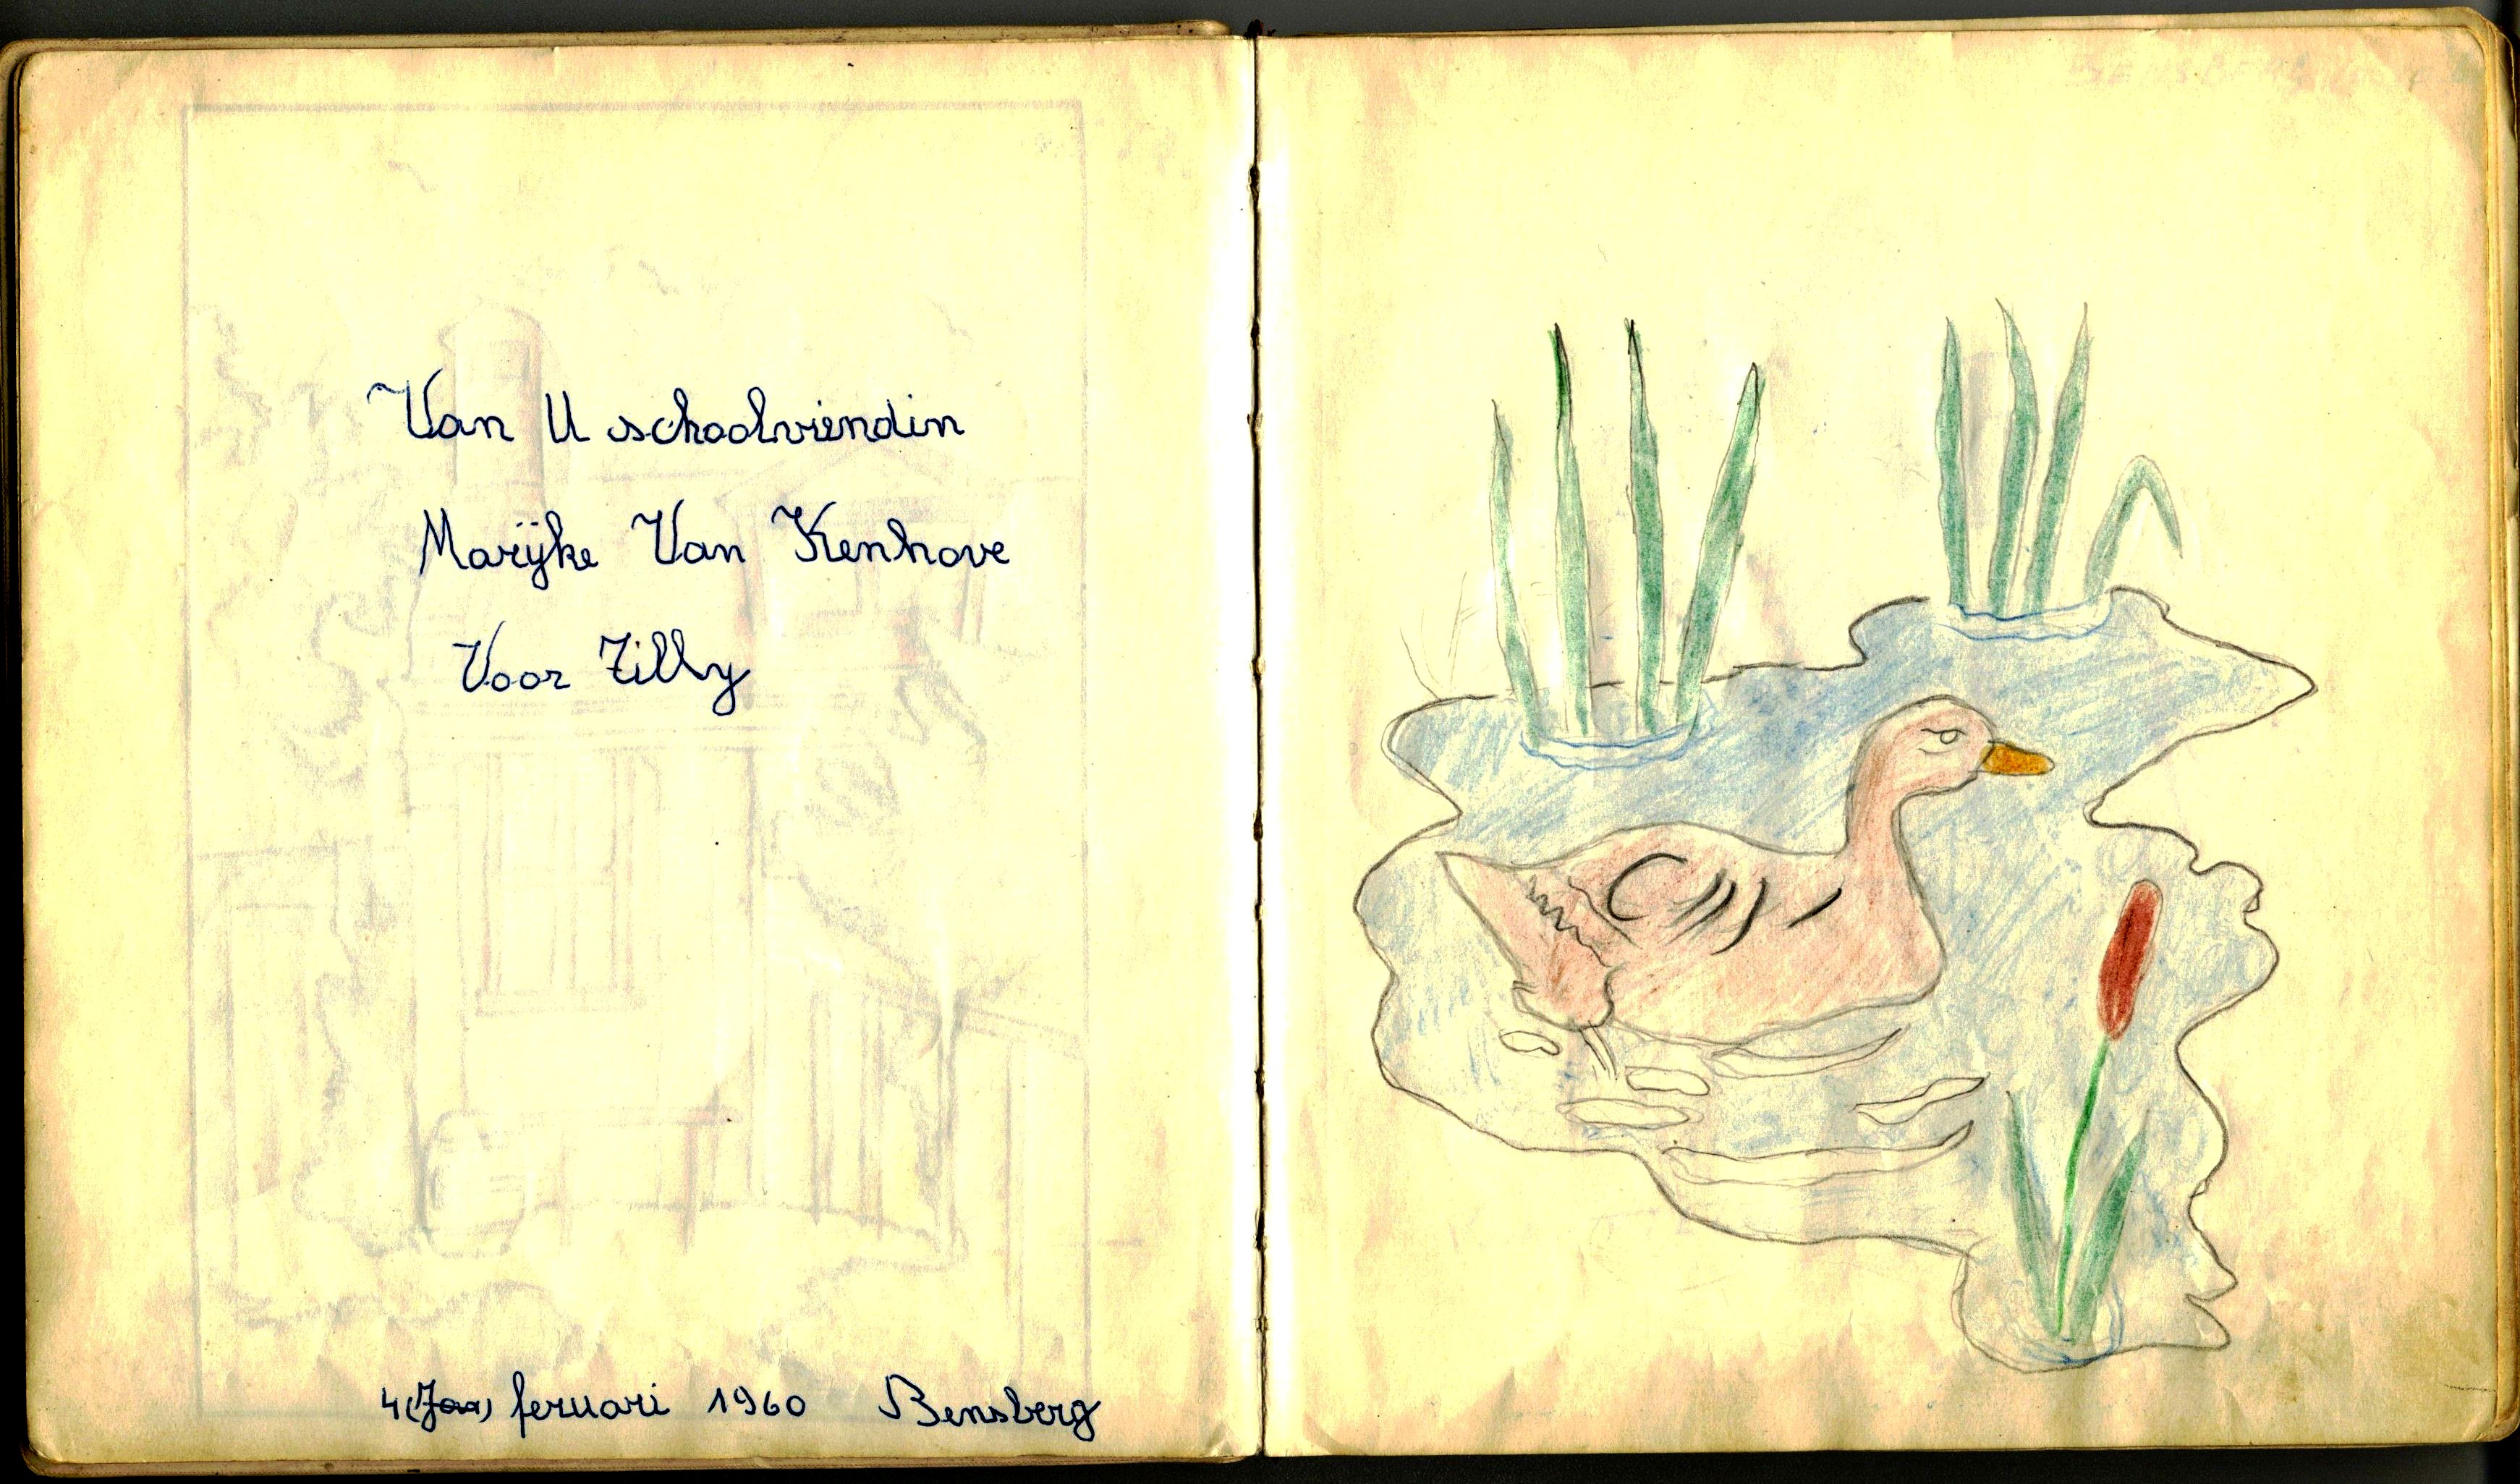 Van U schoolvriendin
Marijke Van Kenhove
Voor Tilly
4 (Jan) feruari 1960 Bensberg